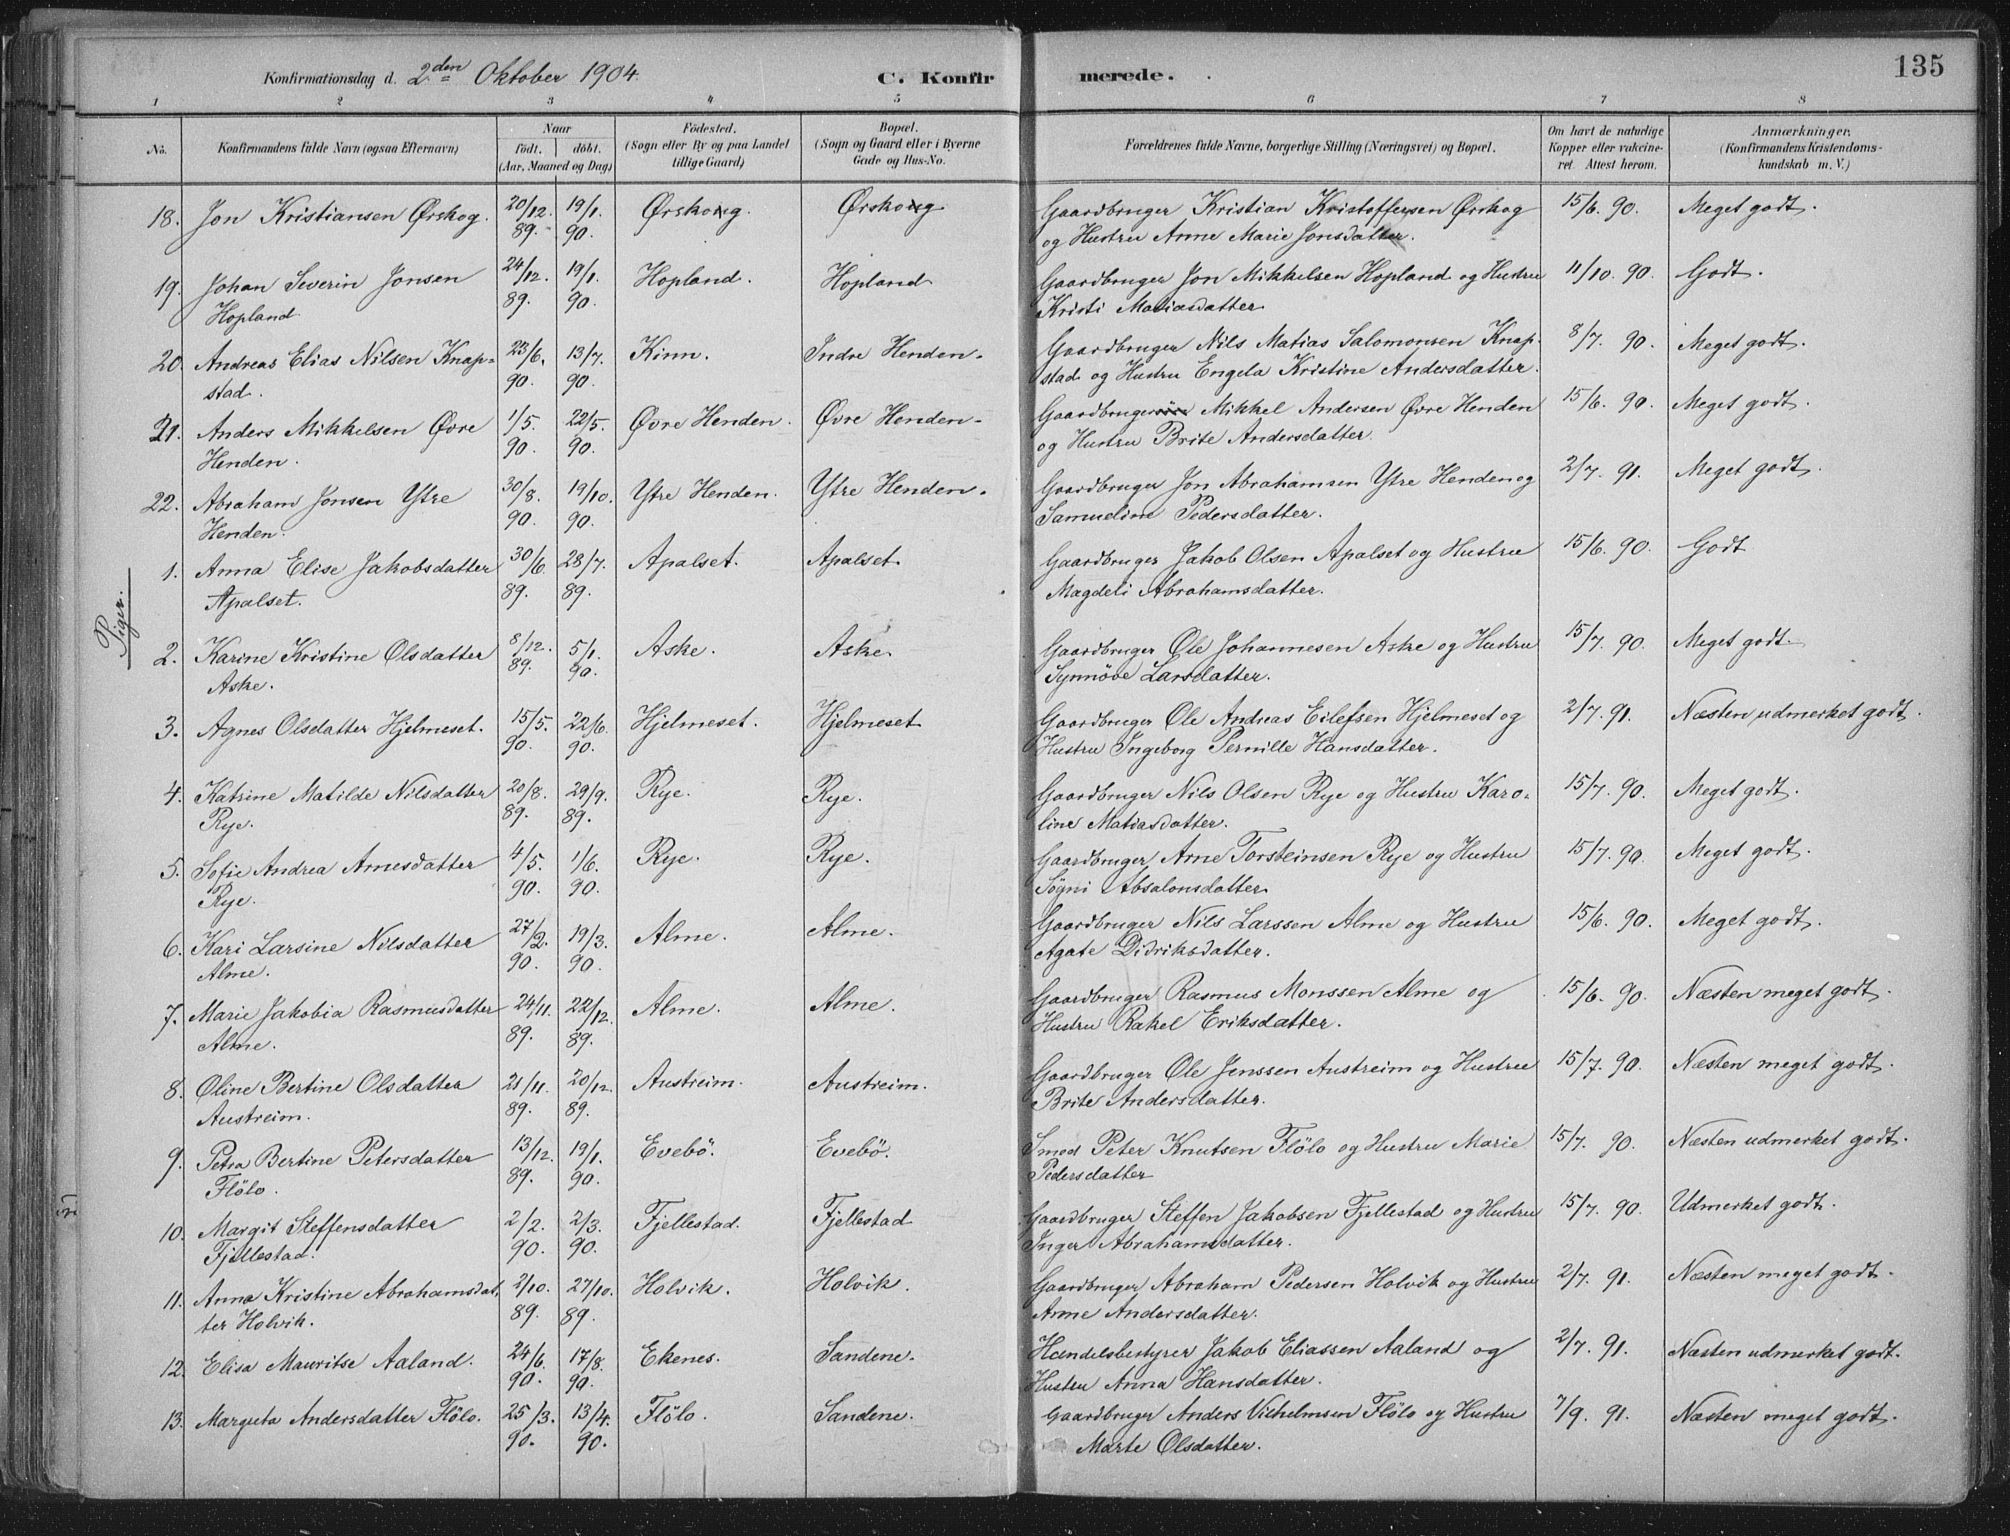 135
Konfirmationsdag d. 2den Oktober 1904. C. Konfirmerede.
1 2 3 4 5 6 7 8
No. Konfirmandens fulde Navn (ogsaa Efternavn) Naar født. døbt. (Aar, Maaned og Dag) Fødested. (Sogn eller By og paa Landet tillige Gaard) Bopæl. (Sogn og Gaard eller i Byerne Gade og Hus-No. Forældrenes fulde Navne, borgerlige Stilling (Næringsvei) og Bopæl. Om havt de naturlige Kopper eller vakcineret. Attest herom. Anmærkninger. (Konfirmandens Kristendomskundskab m. V.)
18. Jon Kristiansen Ørskog. 20/12. 89. 19/1. 90. Ørskog Ørskog Gaardbruger Kristian Kristoffersen Ørskog 15/6. 90. Meget godt.
og Hustru Anne Marie Jonsdatter.
19. Johan Severin Jonsen 24/12. 89. 19/1. 90. Hopland. Hopland Gaardbruger Jon Mikkelsen Hopland og Hustru 11/10. 90. Godt.
Hopland Kristi Matiasdatter
20. Andreas Elias Nilsen Knap- 23/6. 90. 13/7. 90. Kinn. Indre Henden. Gaardbruger Nils Matias Salomonsen Knap- 8/7. 90. Meget godt.
stad. stad og Hustru Engela Kristine Andersdatter.
21. Anders Mikkelsen Øvre 1/5. 90. 22/5. 90. Øvre Henden. Øvre Henden. Gaardbruger Mikkel Andersen Øvre Henden 15/6. 90. Meget godt.
Henden. og Hustru Brite Andersdatter.
22. Abraham Jonsen Ytre 30/8. 90. 19/10. 90. Ytre Henden. Ytre Henden. Gaardbruger Jon Abrahamsen Ytre Henden og 2/7. 91. Meget godt.
Henden. Samueline Pedersdatter.
Piger.
1. Anna Elise Jakobsdatter 30/6. 89. 28/7. 89. Apalset. Apalset. Gaardbruger Jakob Olsen Apalset og Hustru 15/6. 90. Godt
Apalset. Magdeli Abrahamsdatter.
2. Karine Kristine Olsdatter 8/12. 89. 5/1. 90. Aske. Aske. Gaardbruger Ole Johannesen Aske og Hustru 15/7. 90. Meget godt.
Aske. Synnöve Larsdatter.
3. Agnes Olsdatter Hjelmeset. 15/5. 90. 22/6. 90. Hjelmeset. Hjelmeset Gaardbruger Ole Andreas Eilefsen Hjelmeset og 2/7. 91. Næsten udmerket godt.
Hustru Ingeborg Pernille Hansdatter.
4. Katrine Matilde Nilsdatter 20/8. 89. 29/9. 89. Rye. Rye. Gaardbruger Nils Olsen Rye og Hustru Karo- 15/7. 90. Meget godt.
Rye. line Matiasdatter.
5. Sofie Andrea Arnesdatter 4/5. 90. 1/6. 90. Rye. Rye. Gaardbruger Arne Torsteinsen Rye og Hustru 15/7. 90. Meget godt.
Rye. Søgni Absalonsdatter
6. Kari Larsine Nilsdatter 27/2. 90. 19/3. 90. Alme. Alme. Gaardbruger Nils Larssen Alme og Hustru 15/6. 90. Meget godt.
Alme. Agate Didriksdatter.
7. Marie Jakobia Rasmusdatter 24/11. 89. 22/12. 89. Alme. Alme. Gaardbruger Rasmus Monssen Alme og 15/6. 90. Næsten meget godt.
Alme. Hustru Rakel Eriksdatter.
8. Oline Bertine Olsdatter 21/11. 89. 20/12. 89. Austreim. Austreim. Gaardbruger Ole Jenssen Austreim og Hustru 15/7. 90. Næsten meget godt.
Austreim. Brite Andersdatter.
9. Petra Bertine Petersdatter 13/12. 89. 19/1. 90. Evebö. Evebö. Smed Peter Knutsen Flölo og Hustru Marie 15/7. 90. Næsten udmerket godt.
Flölo. Pedersdatter
10. Margit Steffensdatter 2/2. 90. 2/3. 90. Fjellestad. Fjellestad Gaardbruger Steffen Jakobsen Fjellestad og Hustru 15/7. 90. Udmerket godt.
Fjellestad. Inger Abrahamsdatter.
11. Anna Kristine Abrahamsdat- 2/10. 89. 27/10. 89. Holvik. Holvik. Gaardbruger Abraham Pedersen Holvik og Hustru 2/7. 91. Næsten meget godt.
ter Holvik. Anne Andersdatter.
12. Elisa Mauritse Aaland. 24/6. 90. 17/8. 90. Ekenes. Sandene. Handelsbestyrer Jakob Eliassen Aaland og 2/7. 91. Næsten udmerket godt.
Hustru Anna Hansdatter.
13. Margreta Andersdatter Flölo. 25/3. 90. 13/4. 90. Flölo. Sandene. Gaardbruger Anders Vilhelmsen Flölo og Hustru 7/9. 91. Næsten meget godt.
Marte Olsdatter.